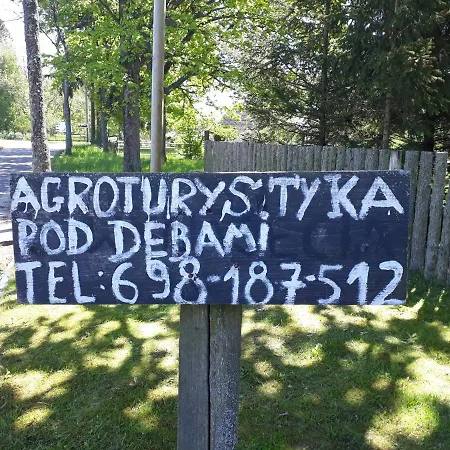 AGROTURYSTYKA
POD DĘBAMi
TEL: 698-187-512